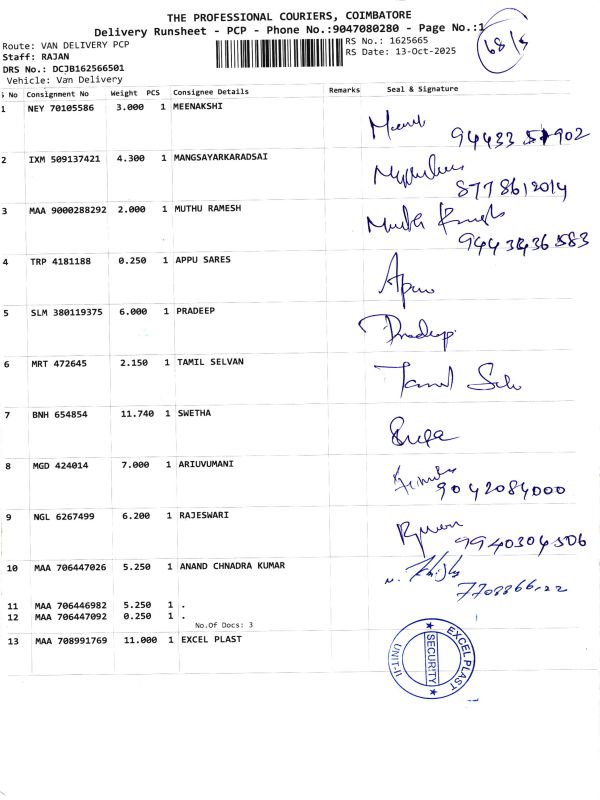 THE PROFESSIONAL COURIERS, COIMBATORE
Delivery Runsheet - PCP - Phone No.:9047080280 - Page No.:1
Route: VAN DELIVERY PCP RS No.: 1625665
Staff: RAJAN RS Date: 13-Oct-2025
DRS No.: DCJB162566501
Vehicle: Van Delivery
68/5
S No Consignment No Weight PCS Consignee Details Remarks Seal & Signature
1 NEY 70105586 3.000 1 MEENAKSHI
2 IXM 509137421 4.300 1 MANGSAYARKARADSAI
8778612014
3 MAA 9000288292 2.000 1 MUTHU RAMESH Muthu
4 TRP 4181188 0.250 1 APPU SARES
5 SLM 380119375 6.000 1 PRADEEP Pradeep
6 MRT 472645 2.150 1 TAMIL SELVAN Tamil
7 BNH 654854 11.740 1 SWETHA
8 MGD 424014 7.000 1 ARIUVUMANI
9042084000
9 NGL 6267499 6.200 1 RAJESWARI
9940304506
10 MAA 706447026 5.250 1 ANAND CHNADRA KUMAR
11 MAA 706446982 5.250 1 .
12 MAA 706447092 0.250 1 .
No.Of Docs: 3
13 MAA 708991769 11.000 1 EXCEL PLAST
EXCEL PLAST
SECURITY
UNIT-II